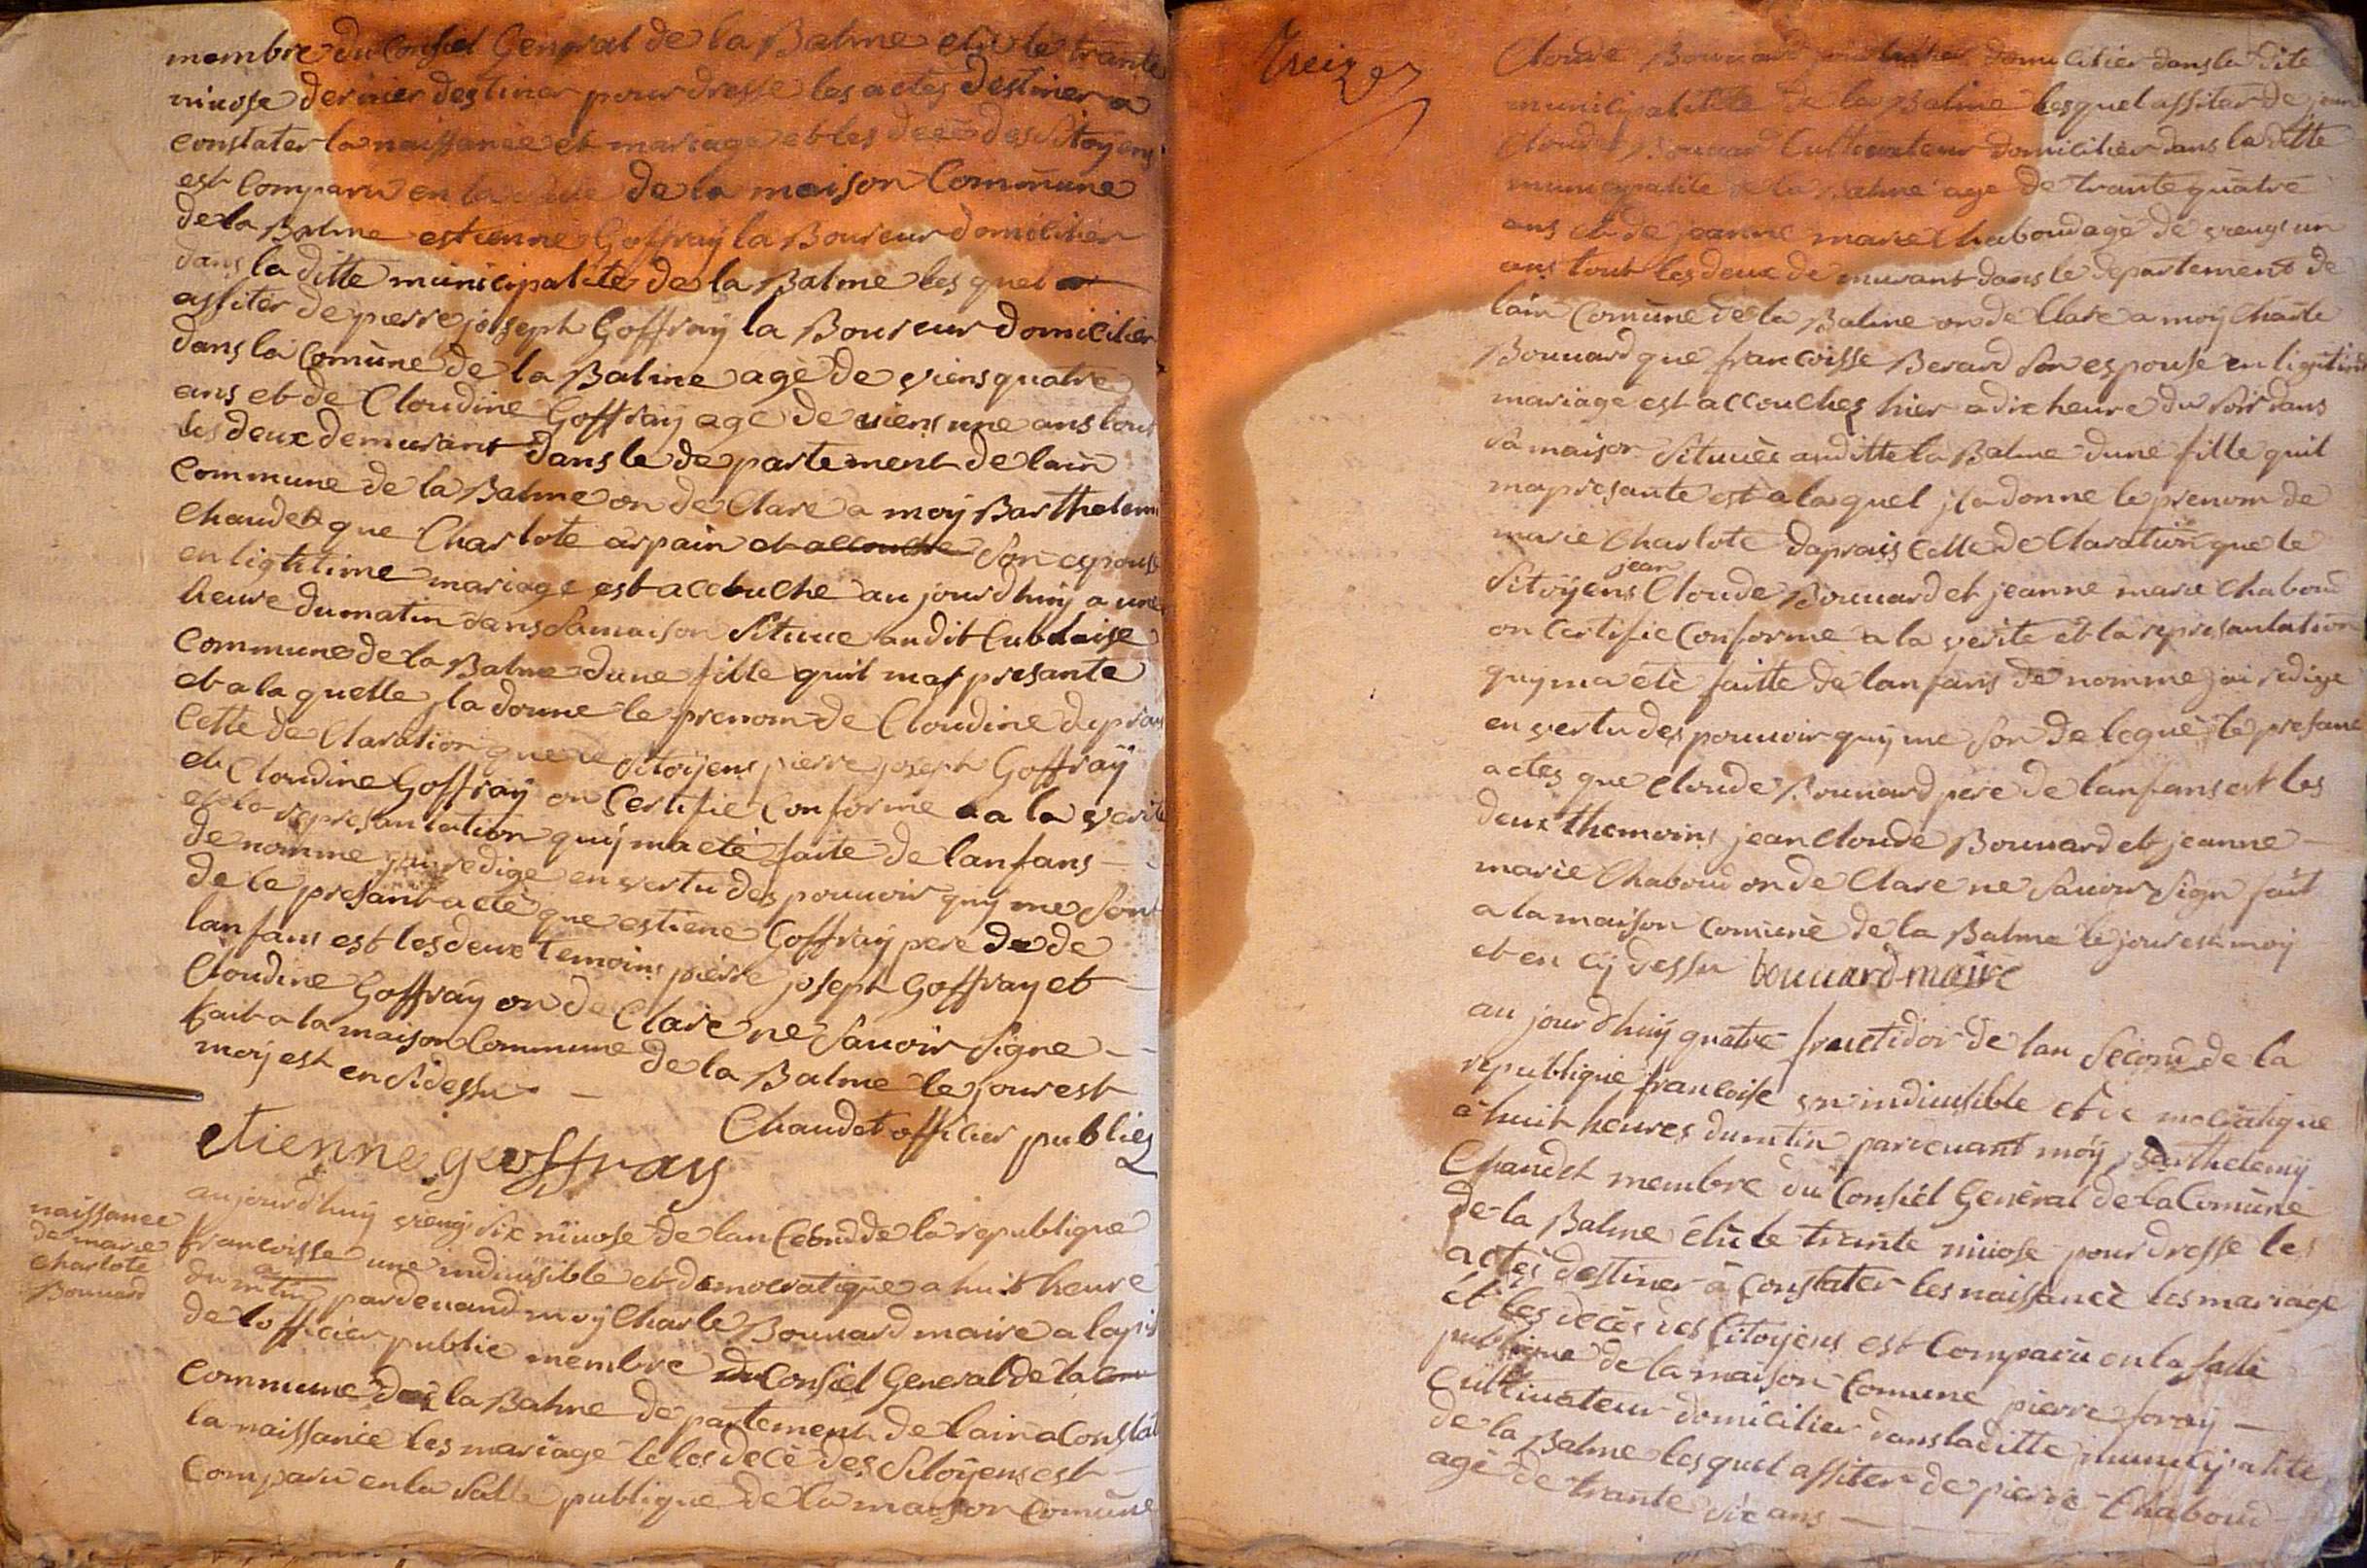 membre du Conseil General de la Balme elu le trante
nivose dernier destiner pour dresse les actes destiner a
constater la naissance et mariage et les decè des Sitoyens
est Comparu en la salle de la maison Commune
de la Balme estienne Goffray la Boureur domicilier
dans la ditte municipalite de la Balme les quel
assiter de pierre joseph Goffray la Boureur domicilier
dans la Comune de la Balme agè de viens quatre
ans et de Cloudine Goffray age de viens une ans tous
les deux demurant dans le departement de lain
Commune de la Balme on de Clare a moy Barthelemi
Chaudet que Charlote arpain et allouche son espouse
en lightime mariage est accouche au jourdhuy a une
heure du matin dans sa maison Situue audit Cubloise
Commune de la Balme dune fille quil mat presante
et a la quelle jla donne le prenom de Cloudine daprais
Cette de Claration que le Sitoyens pierre joseph Goffray
et Cloudine Goffray on Certifie Conforme a a la verite
et la represantation quy ma etè faite de lanfans
de nomme jai redige en vertu des pouvoir quy me sont
de le presant acte que estiene Goffray pere de de
lanfans est les deux temoins pierre joseph Goffray et
Cloudine Goffray on de Clare ne Sauoir Signe
fait a la maison Commune de la Balme le jour est
moy est en Sidessu
Chaudet officier publics
etienne geoffray
naissance
de marie
charlote
Bouuard
aujourdhuy vens six nivose de lan Cecondde la republique
francoisse une indiuisible et democratique a huit heure
du matin pardeuand moy Charle Bouuard maire a la pl
de lofficier public membre du Consiel General de la
Commune de la Balme departement de lain a Constat
la naissance les mariage le les decè des Sitoyens est
Comparu en la Salle publique de la maison Comune
treize
Cloude Bouuard domicilier dans la dite
municipalitite de la Balme lesquel assiter de jean
Cloude Bouuar Cultivateur domicilier dans la ditte
municipalite de la Balme age de trante quatre
ans et de jeanne marie Chaboud agè de vengt un
ans tout les deux de murant dans le departement de
lain Comune de la Balme on de Clare a moy Charle
Bouuard que francoisse Berard son espouse en ligitime
mariage est accouches hier a dix heure du soir dans
sa maison Situuèe auditte la Balme dune fille quil
mapresante est a laquel jla donne le prenom de
marie Charlote daprais Cette de Claration que le
Sitoyens jean Cloude Bouuard et jeanne marie Chaboud
on Certifie Conforme a la verite et la represantation
quy ma etè faitte de lanfans de nomme jai redige
en vertu des pouuoir quy me son de leguè le presant
actes que Cloude Bouuard pere de lanfans est les
deux themoins jean Cloude Bouuard et jeanne
marie Chaboud on de Clare ne Sauoir Sign fait
a la maison Comune de la Balme le jour est moy
et en cy dessu bouuard maire
au jourdhuy quatre fructidor de lan Second de la
republique francoise un indiuisible et de mocratique
à huit heures du mtin pardeuant moy Barthelemy
Chaudet membre du Consiel Genèral de la Comune
de la Balme élu le trante nivose pour dresse les
actes destiner à Constater les naissance les mariage
et les decès des Citoyens est Comparù en la salle
publique de la maison Comune pierre foray
Cultiuateur domicilier dans laditte municipalite
de la Balme lesquel assiter de pierre Chaboud
agè de trante six ans